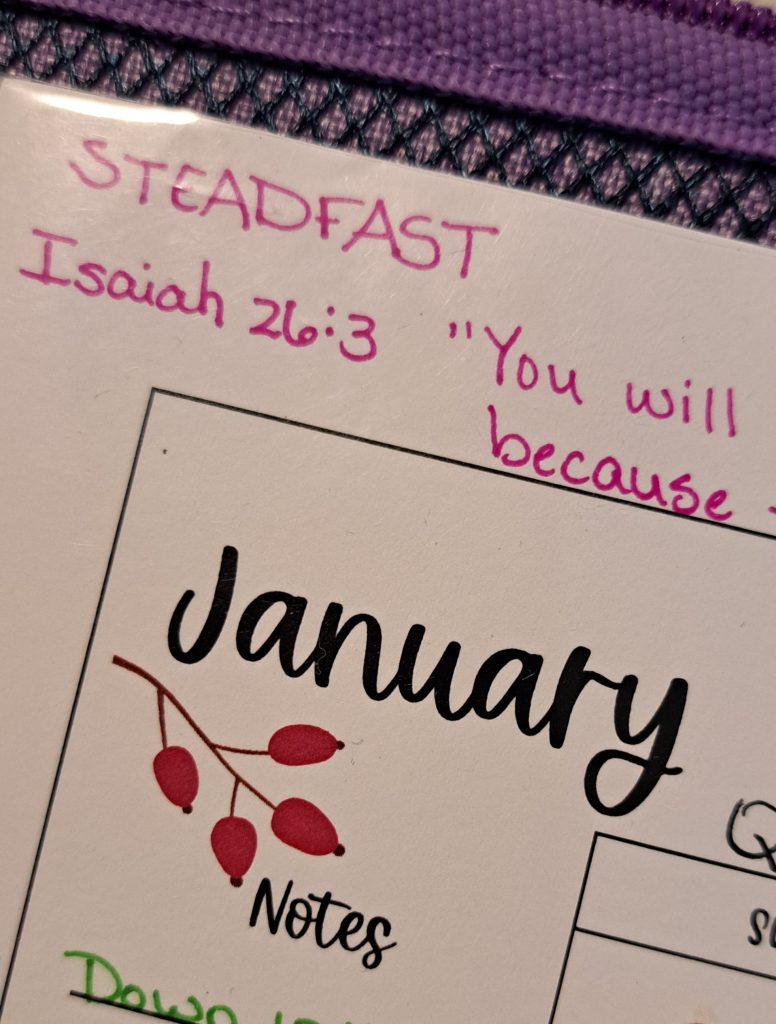 STEADFAST
Isaiah 26:3 "You will
because
January
Notes
Down